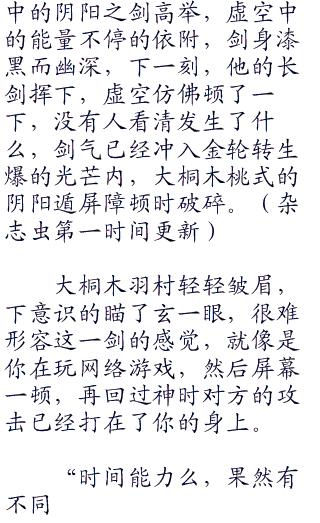 中的阴阳之剑高举，虚空中
的能量不停的依附，剑身漆
黑而幽深，下一刻，他的长
剑挥下，虚空仿佛顿了一
下，没有人看清发生了什
么，剑气已经冲入金轮转生
爆的光芒内，大桐木桃式的
阴阳遁屏障顿时破碎。（杂
志虫第一时间更新）
大桐木羽村轻轻皱眉，
下意识的瞄了玄一眼，很难
形容这一剑的感觉，就像是
你在玩网络游戏，然后屏幕
一顿，再回过神时对方的攻
击已经打在了你的身上。
“时间能力么，果然有
不同